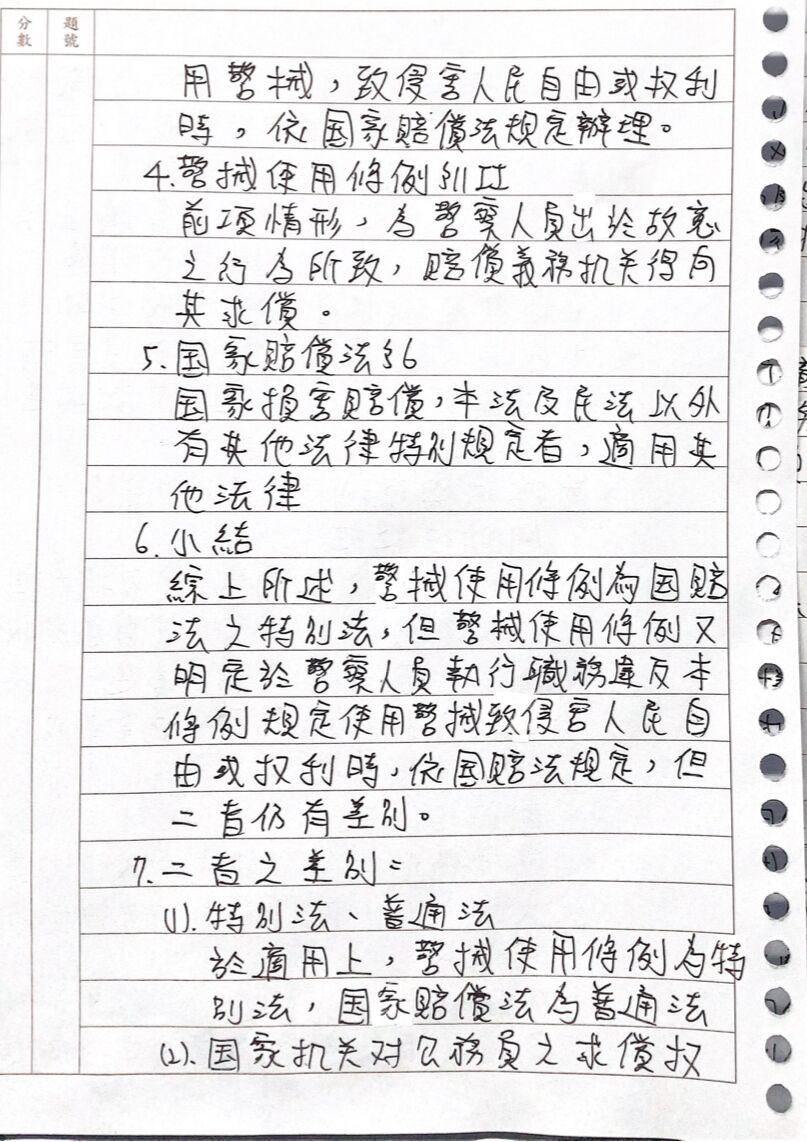 分數 題號
用警械，致侵害人民自由或权利
時，依国家賠償法規定辦理。
4.警械使用條例§11II
前項情形，為警察人員出於故意
之行為所致，賠償義務机关得向
其求償。
5.国家賠償法§6
国家損害賠償，本法及民法以外
有其他法律特別規定者，適用其
他法律
6.小結
綜上所述，警械使用條例為国賠
法之特別法，但警械使用條例又
明定於警察人員執行職務違反本
條例規定使用警械致侵害人民自
由或权利時，依国賠法規定，但
二者仍有差別。
7.二者之差別：
(1).特別法、普通法
於適用上，警械使用條例為特
別法，国家賠償法為普通法
(2).国家机关对公務員之求償权